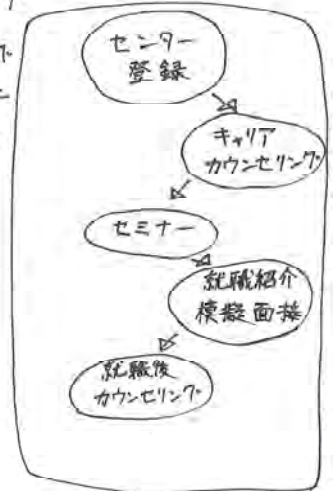 センター
登録
キャリア
カウンセリング
セミナー
就職紹介
模擬面接
就職後
カウンセリング